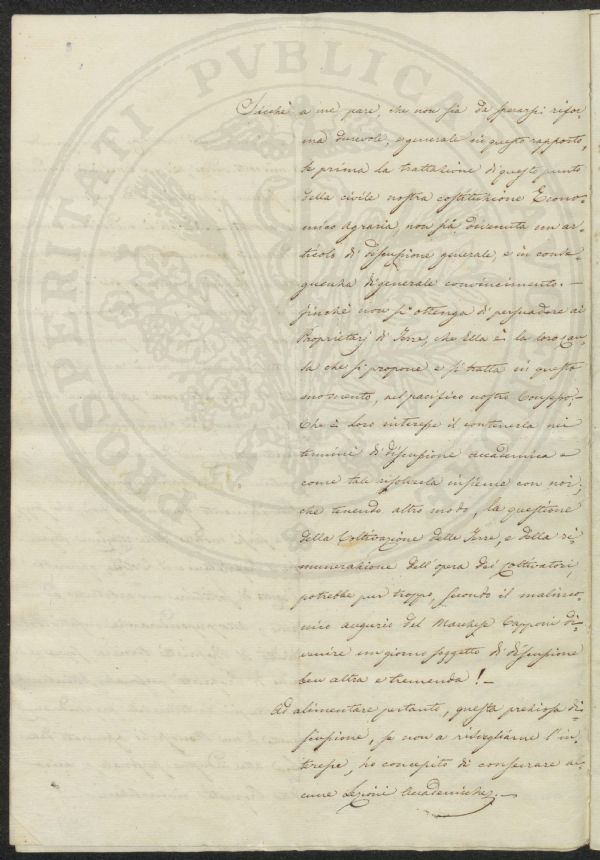 Sicchè a me pare, che non sia da sperarsi rifor-
ma durevole, e generale in questo rapporto,
se prima la trattazione di questo punto
della civile nostra costituzione Econo-
mico Agraria, non sia divenuta un ar-
ticolo di discussione generale, e in conse-
guenza di generale convincimento. —
finchè non si ottenga di persuadere ai
Proprietarj di Terre, che Ella è la loro cau-
sa che si propone e si tratta in questo
momento, nel pacifico nostro Consesso; —
Che è loro interesse il contenerla nei
termini di discussione accademica e
come tale risolverla insieme con noi;
che tenendo altro modo, la questione
della Coltivazione delle Terre, e della ri-
munerazione dell'opera dei Coltivatori,
potrebbe pur troppo, secondo il malinco-
nico augurio del Marchese Capponi di-
venire un giorno soggetto di discussione
ben altra e tremenda! —
Ad alimentare pertanto, questa preziosa di-
scussione, se non a risvegliarne l'in-
teresse, ho concepito di consacrare al-
cune Lezioni Accademiche. —
PROSPERITATI PVBLICAE